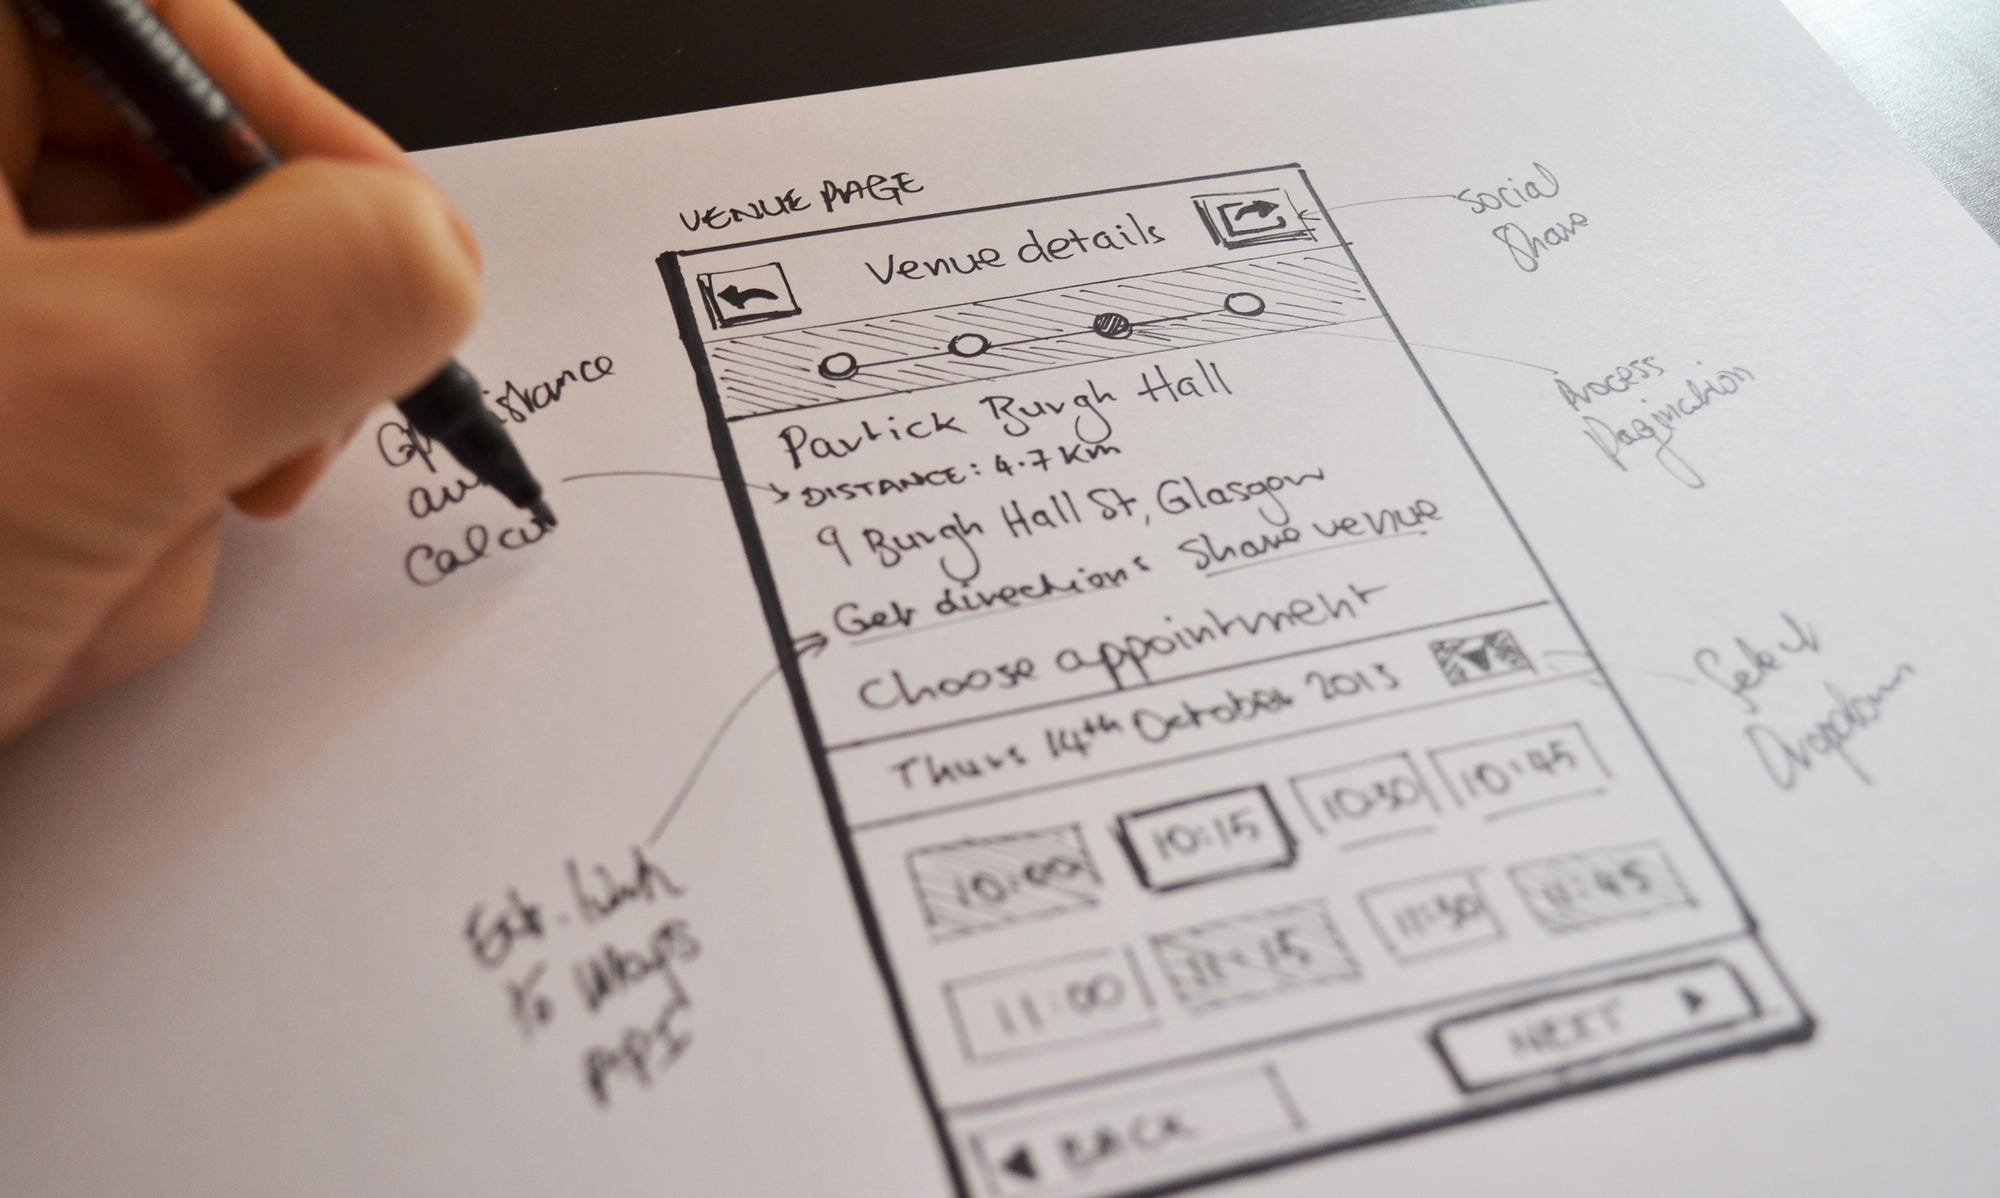 VENUE PAGE
Venue details
social
share
Process
Pagination
Partick Burgh Hall
DISTANCE: 4.7 Km
9 Burgh Hall St, Glasgow
Get directions share venue
Choose appointment
Thurs 14th October 2013
Select
Dropdown
10:00 10:15 10:30 10:45
11:00 11:15 11:30 11:45
BACK NEXT
Calcu
Ext. link
to Maps
API